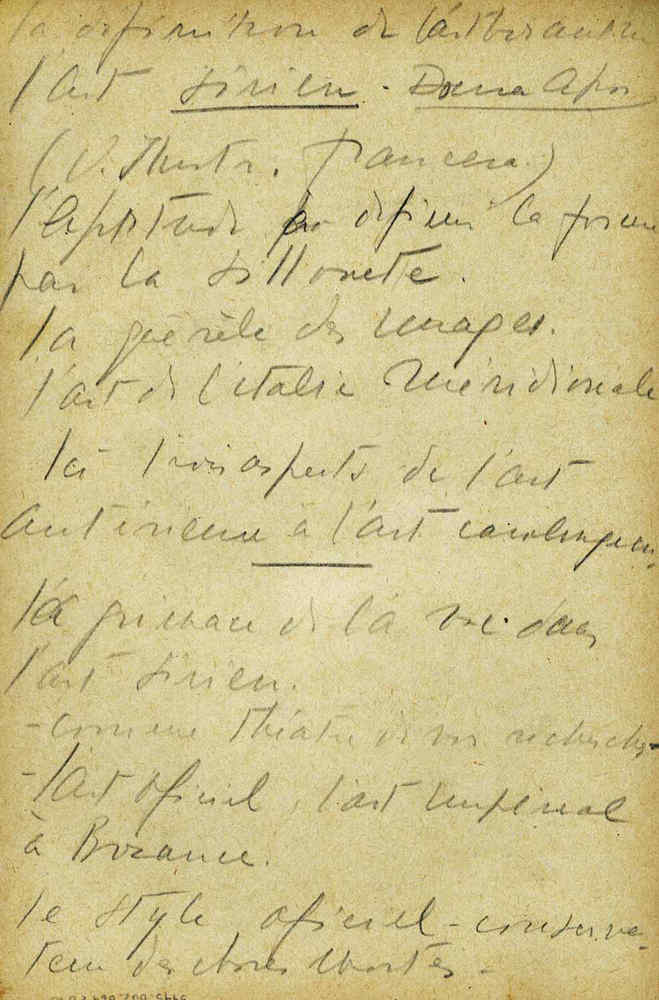 la definition de l'art bizantin
l'art sirien -
(V. francesa)
l'aptitude a definir la forme
par la sillouete.
la querele des images.
l'art de l'italie meridionale
les trois aspects de l'art
anterieur a l'art carolingien.
la primace de la vie dans
l'art sirien.
- comme theatre de vos recherches
- l'art oficiel, l'art imperial
à Bizance.
le style oficiel - conserva-
teur des choses mortes -